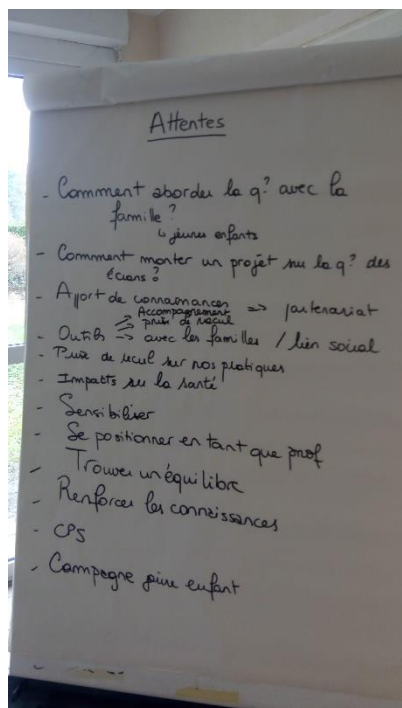 Attentes
- Comment aborder la q° avec la
famille ?
↳ jeunes enfants
- Comment monter un projet sur la q° des
écrans ?
- Apport de connaissances => partenariat
Accompagnement
prise de recul
- Outils -> avec les familles / lien social
- Prise de recul sur nos pratiques
- Impacts sur la santé
- Sensibiliser
- Se positionner en tant que prof
- Trouver un équilibre
- Renforcer les connaissances
- CPS
- Campagne enfant